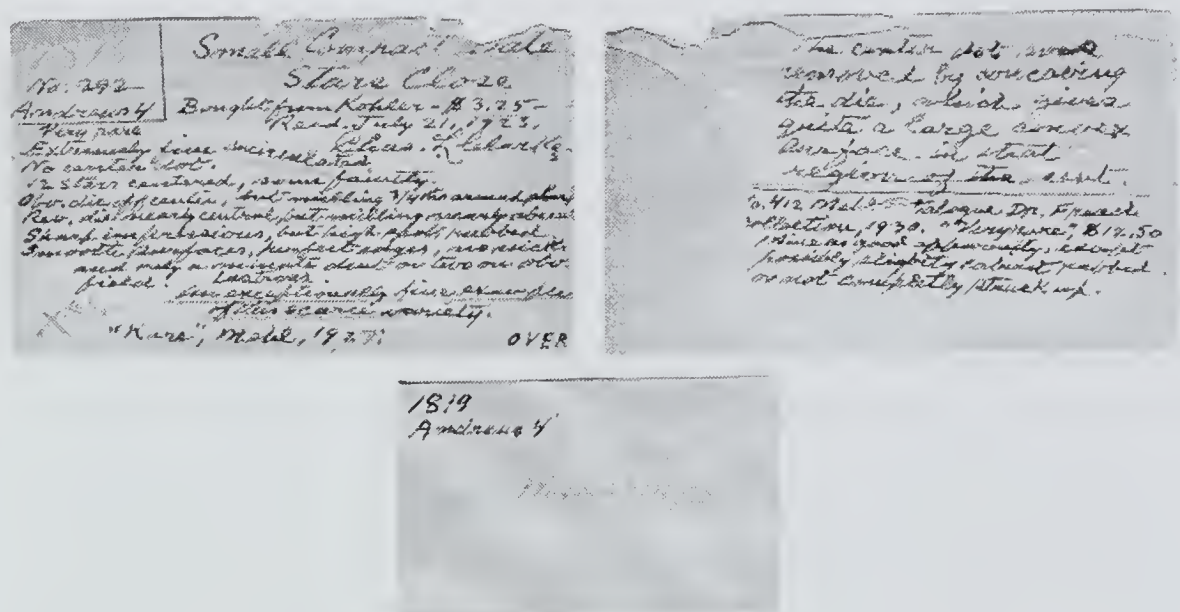 Small Compact Date
Stars Close
No. 292
Andrews 4 Bought from Kohler - $3.25 -
Very rare Recd. July 21, 1923.
Extremely fine uncirculated Chas.
No center dot.
12 stars centered, some faintly.
Obv. die off center, but milling 3/4ths around
Rev. die nearly central, but milling nearly
Sharp impressions, but high spots rubbed.
Smooth surfaces, perfect edges, no nicks
and only a minute dent or two on obv.
field. Lustrous.
An exceptionally fine example
of this scarce variety.
"Rare", Mehl, 1927.
OVER
The center dot
removed by concaving
the die, which gives
quite a large convex
surface in that
region of the
o. 412 Mehl Dr. French
ollection, 1930. "Very rare", $12.50
possibly slightly rubbed
or not completely struck up.
1819
Andrews 4